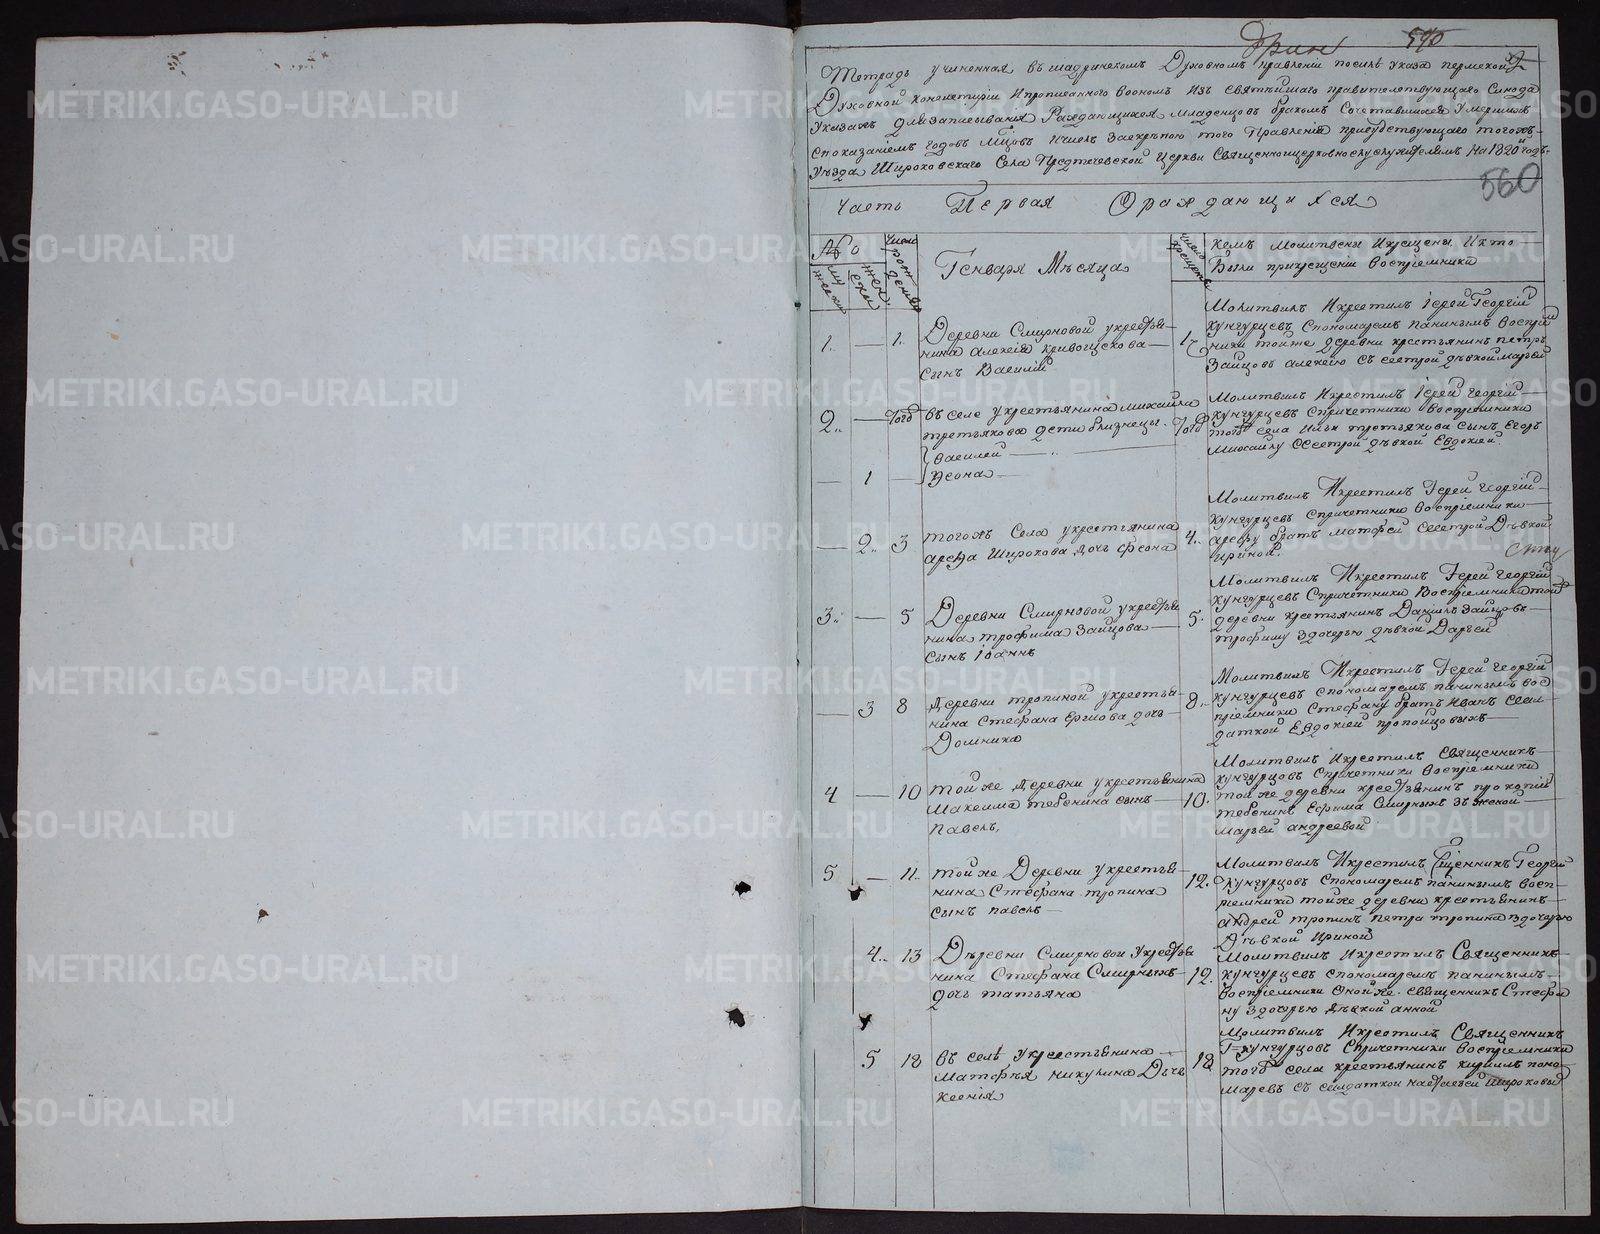 590
Тетрадь учиненная въ шадринскомъ Духовномъ правленіи посилѣ указа пермской
Духовной консисторіи Ипрописанного воономъ Изъ святѣйшаго правителствующаго Синода
Указахъ Длязаписыванія Раждающихся младенцовъ бракомъ Сочетавшихся Умершихъ
споказаніемъ годовъ Мцовъ Ичиселъ Заскрѣпою того Правленія присудствующаго тогожъ
Уѣзда Широковскаго Села Предтечевской Церкви Священноицерковнослужителямъ на 1820 годъ
560
Часть Первая Ораждающихся
№
Число рожденія
Генваря Мѣсяца
число крещенія
Кемъ Молитвены Икрещены Икто
Были прикрещеніи воспріемники
мужеска
женска
1. — 1.
Деревни Смирновой укрестья-
нина Алексія Кривощекова
сынъ Василій
1
Молитвилъ Икрестилъ Іерей Георгій
кунгурцевъ Спономаремъ панинымъ воспріем
ники тойже деревни крестьянинъ петръ
Зайцовъ алексію съ сестрой дѣвкой марьей
2. — Того
въ селе укрестьянина михайла
третьякова дети близнецы.
Василей
1
Ѳеона
Того
Молитвилъ Икрестилъ Іерей Георгій
кунгурцевъ Спричетники воспріемники
того села Ильи третьякова сынъ Егоръ
Михайлу Ссестрой дѣвкой Евдокіей.
— 2. 3
тогожъ Села укрестьянина
арефа Широкова дочь феона
4.
Молитвилъ Икрестилъ Іерей георгій
кунгурцевъ Спричетники воспріемники
арефу братъ матфей Ссестрой Дѣвкой
ириной.
3. — 5
Деревни Смирновой укрестья
нина трофима Зайцова
Сынъ Іоаннъ
5.
Молитвилъ Икрестилъ Іерей георгій
кунгурцевъ Спричетники Воспріемники той
деревни крестьянинъ Данилъ Зайцовъ
трофиму здочерью дѣвкой Дарьей
— 3 8
Деревни тропиной укрестья-
нина Стефана Ершова дочь
Домника
8.
Молитвилъ Икрестилъ Іерей георгій
кунгурцевъ спономаремъ панинымъ вос
пріемники Стефану братъ Иванъ Ссол-
даткой Евдокіей пропойцовыхъ
4 — 10
той же Деревни укрестьянина
Максима тебенина сынъ
павелъ
10.
Молитвилъ Икрестилъ Священникъ
кунгурцовъ Спричетники воспріемники
той же деревни крестьянинъ прокопій
тебенинъ Ефима Смирныхъ зъ женой
марьей андреевой
5 — 11.
той же Деревни укрестья-
нина Стефана тропина
сынъ павелъ
12.
Молитвилъ Икрестилъ Сщенникъ Георгій
кунгурцовъ Спономаремъ панинымъ восп-
ріемники тойже деревни крестьянинъ
андрей тропинъ петра тропина здочерью
Дѣвкой Ириной
4. 13
Деревни Смирновой Укрестья
нина Стефана Смирныхъ
дочь татьяна
12.
Молитвилъ Икрестилъ Священникъ
кунгурцевъ спономаремъ панинымъ
воспріемники Оной же священникъ Стефа
ну здочерью дѣвкой анной
5 18
въ селѣ укрестьянина
Матфѣя никулина Дочь
Ксенія
18
Молитвилъ Икрестилъ Священникъ
Г кунгурцовъ Спричетники воспріемники
того села крестьянинъ кирилъ поно
маревъ съ солдаткой настасьей широковы
METRIKI.GASO-URAL.RU